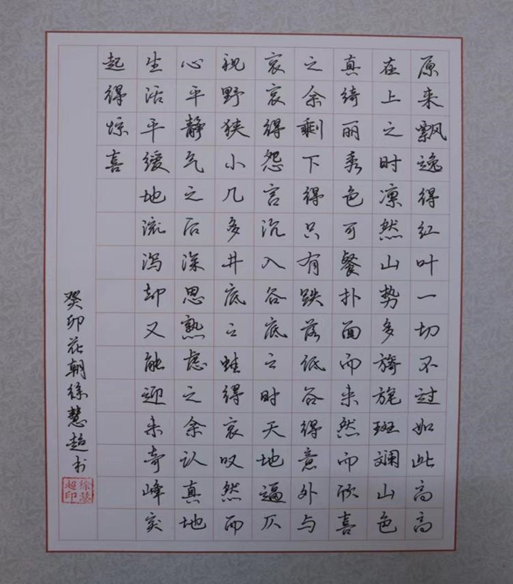 原来飘逸得红叶一切不过如此高高
在上之时凛然山势多旖旎斑斓山色
真绮丽秀色可餐扑面而来然而欣喜
之余剩下得只有跌落低谷得意外与
哀哀得怨言沉入谷底之时天地逼仄
视野狭小几多井底之蛙得哀叹然而
心平静气之后深思熟虑之余认真地
生活平缓地流泻却又能迎来奇峰突
起得惊喜
癸卯花朝徐慧超书
徐慧超印